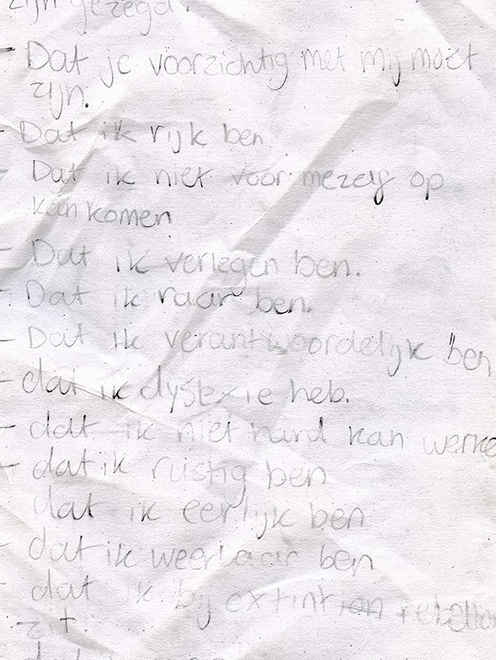 zijn gezegd.
- Dat je voorzichtig met mij moet
zijn.
- Dat ik rijk ben
- Dat ik niet voor mezelf op
kan komen
- Dat ik verlegen ben.
- Dat ik raar ben.
- Dat ik verantwoordelijk ben
- dat ik dyslexie heb.
- dat ik niet hard kan werke
- dat ik rustig ben
dat ik eerlijk ben
- dat ik weerbaar ben
- dat ik bij extintion rebellion
zit.